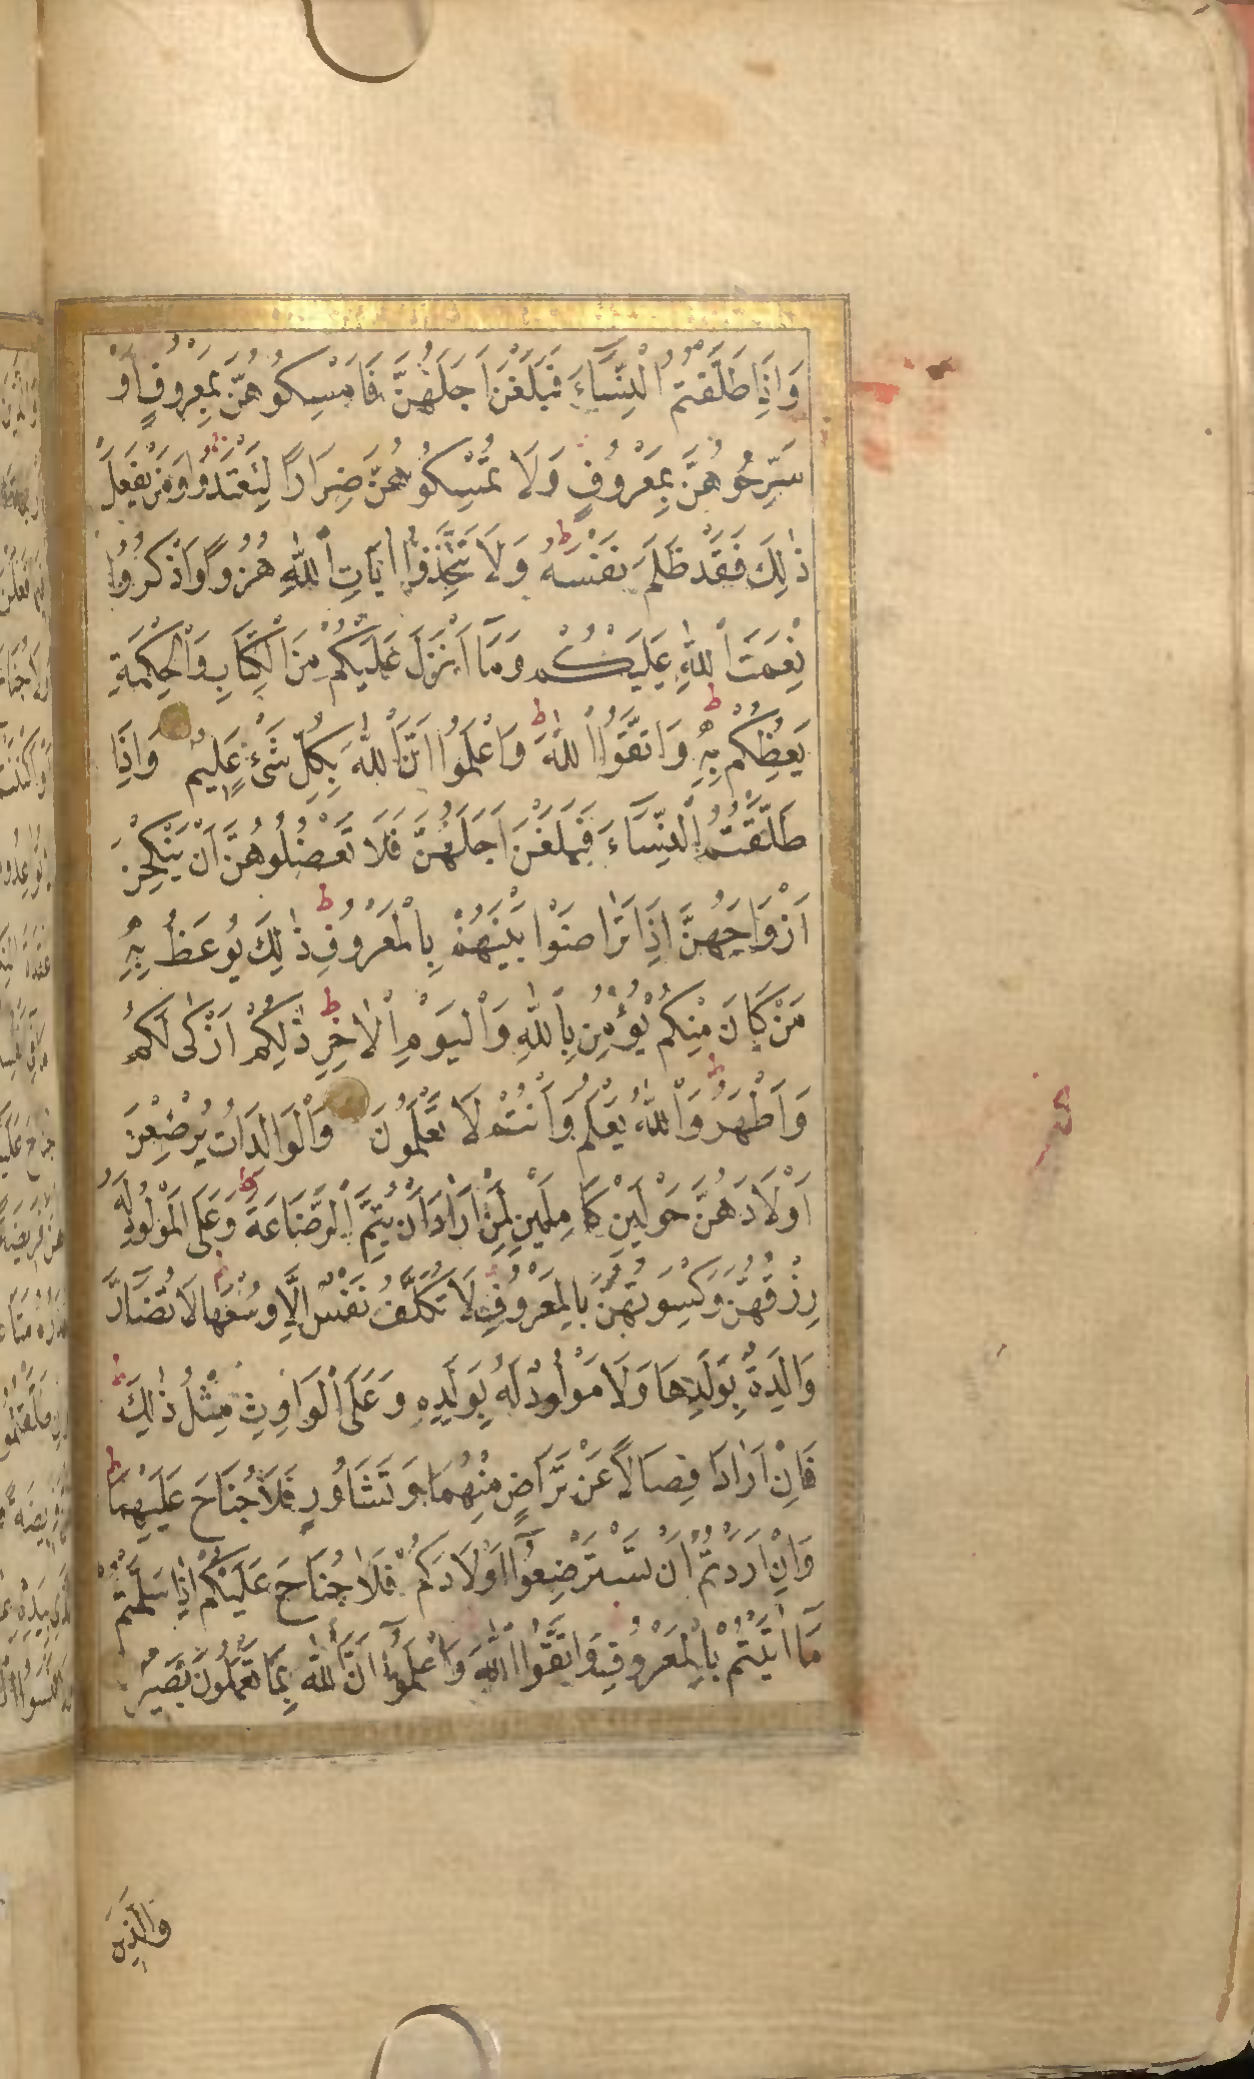 وَاِذَا طَلَّقْتُمُ النِّسَآءَ فَبَلَغْنَ اَجَلَهُنَّ فَاَمْسِكُوهُنَّ بِمَعْرُوفٍ اَوْ
سَرِّحُوهُنَّ بِمَعْرُوفٍ وَلَا تُمْسِكُوهُنَّ ضِرَارًا لِتَعْتَدُوا وَمَنْ يَفْعَلْ
ذٰلِكَ فَقَدْ ظَلَمَ نَفْسَهُ ط وَلَا تَتَّخِذُوا اٰيَاتِ اللّٰهِ هُزُوًا وَاذْكُرُوا
نِعْمَتَ اللّٰهِ عَلَيْكُمْ وَمَآ اَنْزَلَ عَلَيْكُمْ مِنَ الْكِتَابِ وَالْحِكْمَةِ
يَعِظُكُمْ بِهِ ط وَاتَّقُوا اللّٰهَ ط وَاعْلَمُوا اَنَّ اللّٰهَ بِكُلِّ شَىْءٍ عَلِيمٌ وَاِذَا
طَلَّقْتُمُ النِّسَآءَ فَبَلَغْنَ اَجَلَهُنَّ فَلَا تَعْضُلُوهُنَّ اَنْ يَنْكِحْنَ
اَزْوَاجَهُنَّ اِذَا تَرَاضَوْا بَيْنَهُمْ بِالْمَعْرُوفِ ط ذٰلِكَ يُوعَظُ بِهِ
مَنْ كَانَ مِنْكُمْ يُؤْمِنُ بِاللّٰهِ وَالْيَوْمِ الْاٰخِرِ ط ذٰلِكُمْ اَزْكٰى لَكُمْ
وَاَطْهَرُ ط وَاللّٰهُ يَعْلَمُ وَاَنْتُمْ لَا تَعْلَمُونَ وَالْوَالِدَاتُ يُرْضِعْنَ
اَوْلَادَهُنَّ حَوْلَيْنِ كَامِلَيْنِ لِمَنْ اَرَادَ اَنْ يُتِمَّ الرَّضَاعَةَ ط وَعَلَى الْمَوْلُودِ لَهُ
رِزْقُهُنَّ وَكِسْوَتُهُنَّ بِالْمَعْرُوفِ لَا تُكَلَّفُ نَفْسٌ اِلَّا وُسْعَهَا لَا تُضَآرَّ
وَالِدَةٌ بِوَلَدِهَا وَلَا مَوْلُودٌ لَهُ بِوَلَدِهِ وَعَلَى الْوَارِثِ مِثْلُ ذٰلِكَ ط
فَاِنْ اَرَادَا فِصَالًا عَنْ تَرَاضٍ مِنْهُمَا وَتَشَاوُرٍ فَلَا جُنَاحَ عَلَيْهِمَا ط
وَاِنْ اَرَدْتُمْ اَنْ تَسْتَرْضِعُوٓا اَوْلَادَكُمْ فَلَا جُنَاحَ عَلَيْكُمْ اِذَا سَلَّمْتُمْ
مَآ اٰتَيْتُمْ بِالْمَعْرُوفِ وَاتَّقُوا اللّٰهَ وَاعْلَمُوٓا اَنَّ اللّٰهَ بِمَا تَعْمَلُونَ بَصِيرٌ
وَالَّذِينَ